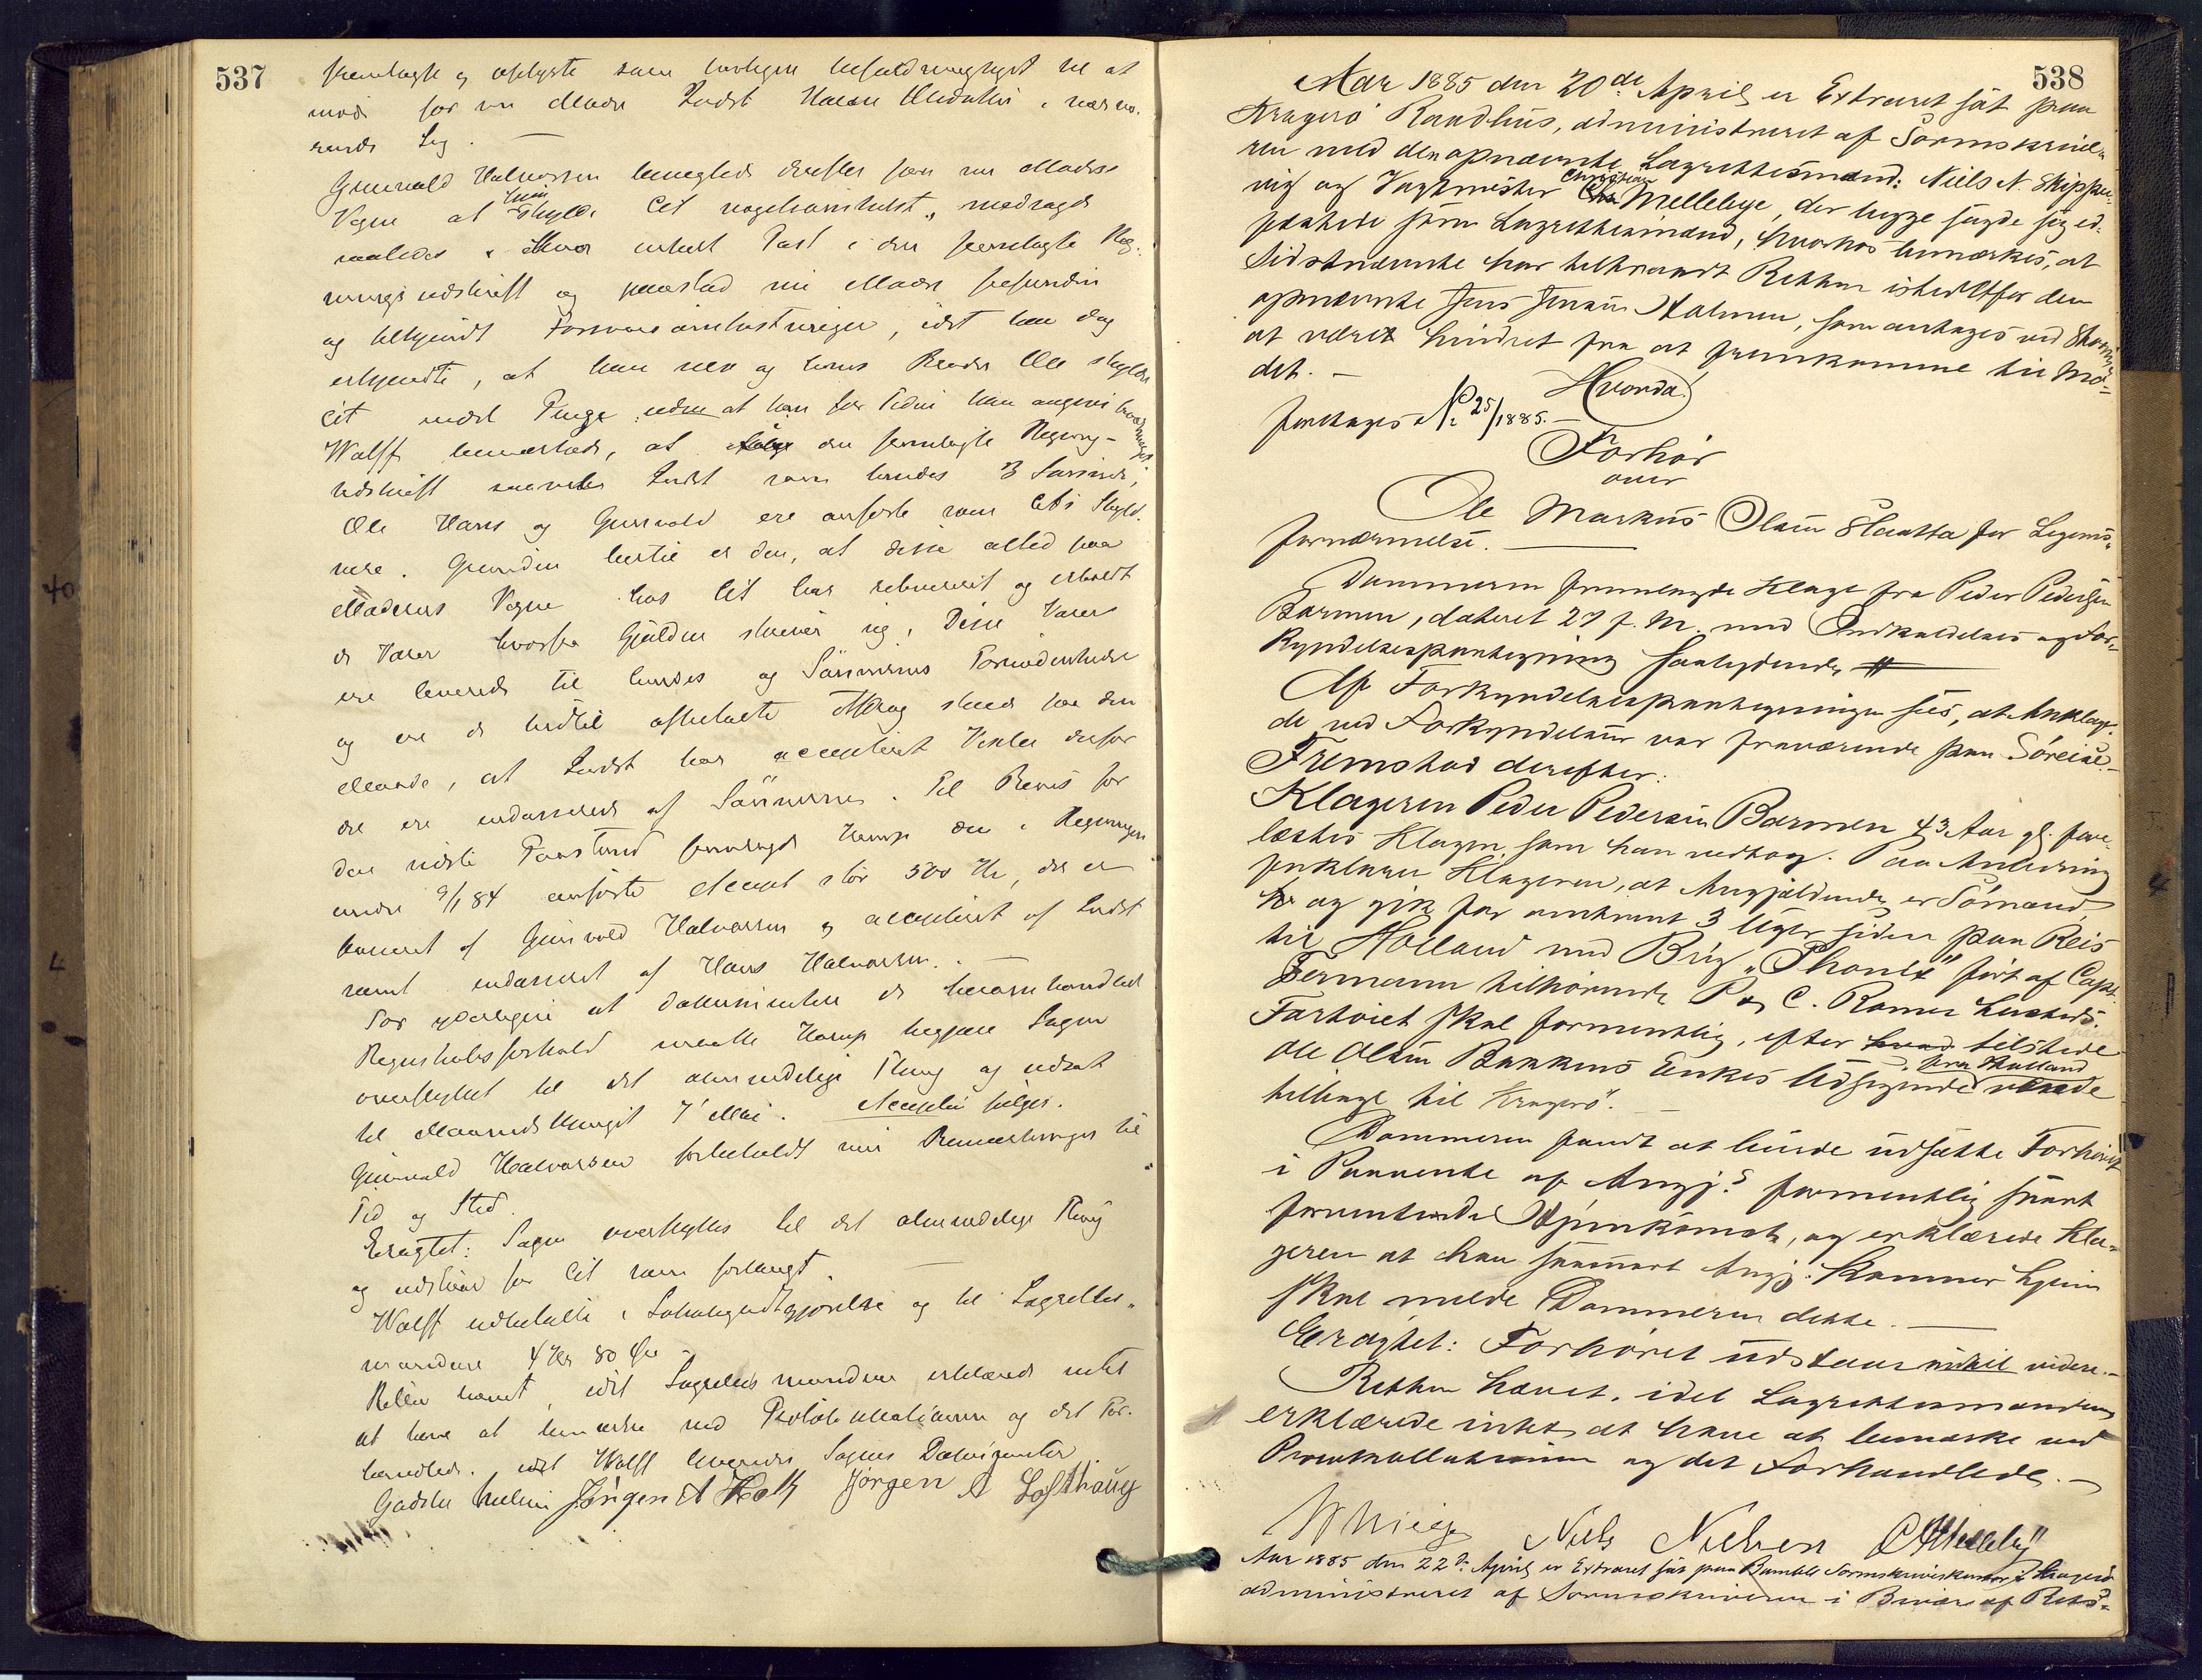 537
fremlagte og oplyste som lovligen befuldmægtiget til at
møde for sin Moder Indst Halvorsdatter i nærvæ-
rende Sag.
Gunvald Halvorsen benegtede derefter paa sin Moders
Vegne at hun skylder Cit nogetsomhelst, modsagde
saaledes hver enkelt Post i den fremlagte Reg-
ningsudskrift og paastod sin Moder frifunden
og tilkjendt Forsvarsomkostninger, idet han dog
erkjendte, at han selv og hans Broder Ole skylder
Cit endel Penge uden at han for Tiden kan angive hvormeget
Wolff bemærkede, at ifølge den fremlagte Regning-
udskrift saavel Indst som hendes 3 Sønner,
Ole Hans og Gunvald ere anførte som Cits Skyld-
nere. Grunden hertil er den, at disse altid paa
Moderens Vegne hos Cit har rekvireret og erholdt
de Varer hvorfra Gjælden skriver sig, Disse Varer
ere leverede til hendes og Sønnernes Fornødenheder
og ere de hidtil afbetalte Afdrag skeede paa den
Maade, at Indst har accepteret Vexler derfor
der ere endosserede af Sønnerne. Til Bevis for
den sidste Paastand fremlagde Kamp den i Regningen
under 9/1 84 anførte Accept stor 300 Kr, der er
trukket af Gunvald Halvorsen og accepteret af Indst
samt endosseret af Hans Halvorsen. -
For yderligere at dokumentere de heromhandlede
Regnskabsforhold maatte Kamp begjære Sagen
overflyttet til det almindelige Thing og udsat
til Maanedsthinget 7 Mai. Accepten følger.
Gunvald Halvorsen forbeholdt sine Bemærkninger til
Tid og Sted.
Eragtet: Sagen overflyttes til det almindelige Thing
og udstaar for Cit som forlangt.
Wolff udbetalte i Lokalegodtgjørelse og til Lagrettes-
mændene 4 Kr 80 Øre -
Retten hævet, idet Lagrettesmændene erklærede intet
at have at bemærke ved Protokollationen og det For-
handlede. idet Wolff leverede Sagens Dokumenter
Jörgen A Holt Jørgen A Lofthaug
538
Aar 1885 den 20de April er Extraret sat paa
Kragerø Raadhus, administreret af Sorenskrive-
ren med den opnævnte Lagrettesmænd: Niels N. Skipper-
vig og Vagtmester Christian Mellebye, der begge sagde sig ed-
fæstede som Lagrettesmænd, hvorhos bemærkes, at
Sidstnævnte har tiltraadt Retten istedetfor den
opnævnte Jens Jensen Kalmen, som antages ved
at være hindret fra at fremkomme til Mø-
det. -
Hvorda!
foretages No 25/1885. -
Forhør
over
Ole Markus Olsen Slaatta for Legems-
fornærmelse.
Dommeren fremlagde Klage fra Peder Pedersen
Barmen, dateret 27 f. M. med Indkaldelses og For-
kyndelsespaategning saalydende #
Af Forkyndelsespaategningen sees, at Anklage-
de ved Forkyndelsen var fraværende paa Søreise -
Fremstod derefter:
Klageren Peder Pedersen Barmen 43 Aar gl. fore-
læstes Klagen, som han vedtog. Paa Anledning
forklarer Klageren, at Angjældende er Sømand
og gik for omtrent 3 Uger siden paa Reis
til Holland med Brig „Phønix“ ført af Capt.
Fermann tilhørende P & C. Romer
Fartøiet skal formentlig, efter tilstede
Ole Olsen Bakkens Enkes Udsigende fra Holland
tilbage til Kragerø.
Dommeren fandt at burde udsætte Forhøret
i Paavente af Angj.s formentlig snart
forventende Hjemkomst, og erklærede Kla-
geren at han saasnart Angj. kommer hjem
skal melde Dommeren dette. -
Eragtet: Forhøret udstaar indtil videre. -
Retten hævet, idet Lagrettesmændene
erklærede intet at have at bemærke ved
Protokollationen og det Forhandlede. -
Niels Nielsen C Mellebÿ
Aar 1885 den 22de April er Extraret sat paa Bamble Sorenskriverkontor i Kragerø
administreret af Sorenskriveren i Overvær af Rets-